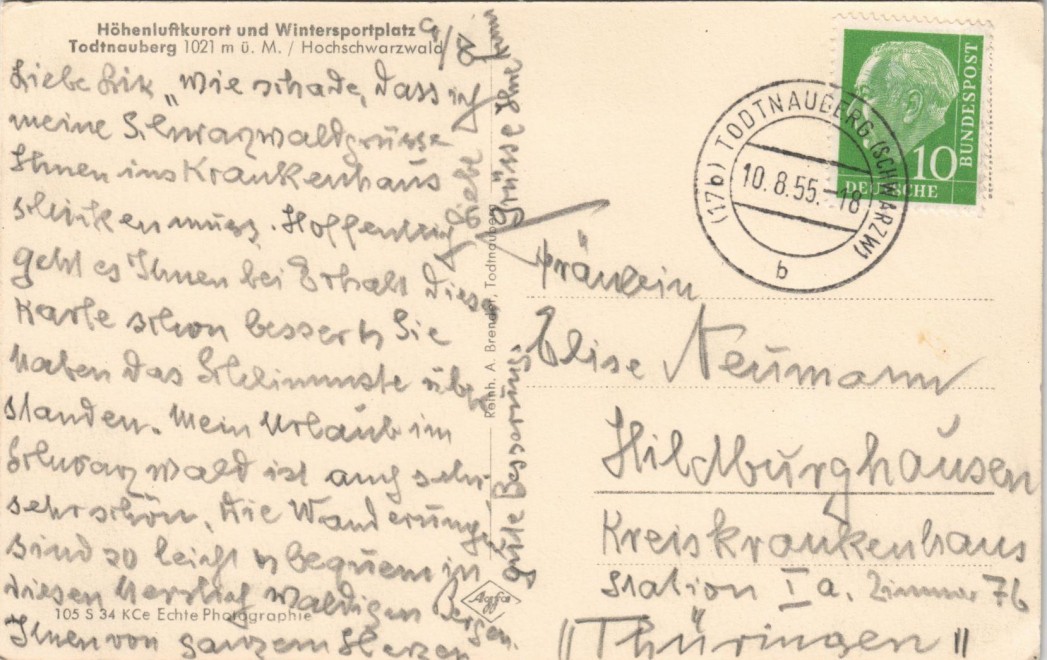 Höhenluftkurort und Wintersportplatz
Todtnauberg 1021 m ü. M. / Hochschwarzwald
Liebe wie schade, dass ich
meine Schwarzwaldgrüsse
Ihnen ins Krankenhaus
schicken muss. Hoffentlich
geht es Ihnen bei Erhalt dieser
Karte schon besser u Sie
haben das Schlimmste über
standen. Mein Urlaub im
Schwarzwald ist auch sehr
sehr schön, die Wanderungen
sind so leicht u bequem in
diesen herrlich waldigen Bergen.
Ihnen von ganzem Herzen
gute Besserung.
Liebe
Grüsse Ihre
Reinh. A. Brender, Todtnauberg
105 S 34 KCe Echte Photographie
Agfa
(17b) TODTNAUBERG (SCHWARZW)
10.8.55.-18
b
10
DEUTSCHE
BUNDESPOST
Fräulein
Elise Neumann
Hildburghausen
Kreiskrankenhaus
Station I a. Zimmer 76
"Thüringen"